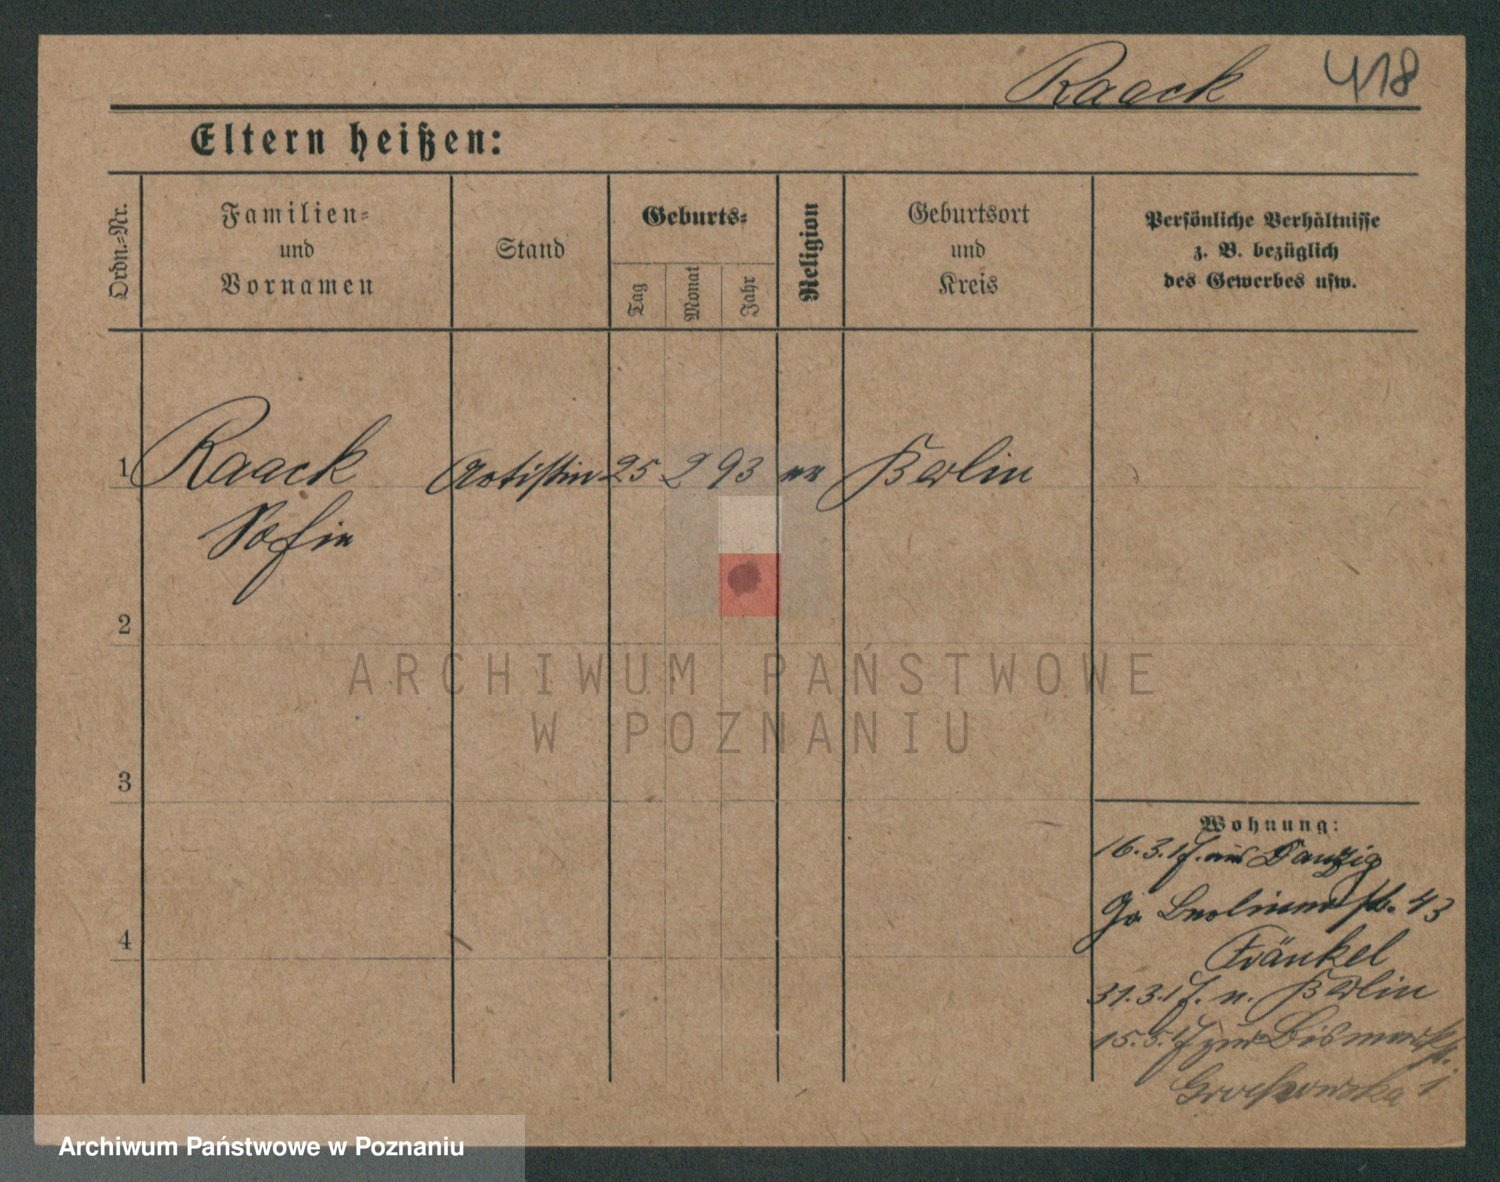 Raack 418
Eltern heißen:
Ordn.=Nr.
Familien=
und
Vornamen
Stand
Geburts=
Tag
Monat
Jahr
Religion
Geburtsort
und
Kreis
Persönliche Verhältnisse
z. B. bezüglich
des Gewerbes usw.
1 Raack Artistin 25 2 93 ev Berlin
Sofie
2
3
4
Wohnung:
16.3.17. aus Danzig
Gr Berlinerstr. 43
Fränkel
31.3.17. n. Berlin
15.5.17 Bismarckstr. 1
ARCHIWUM PAŃSTWOWE
W POZNANIU
Archiwum Państwowe w Poznaniu